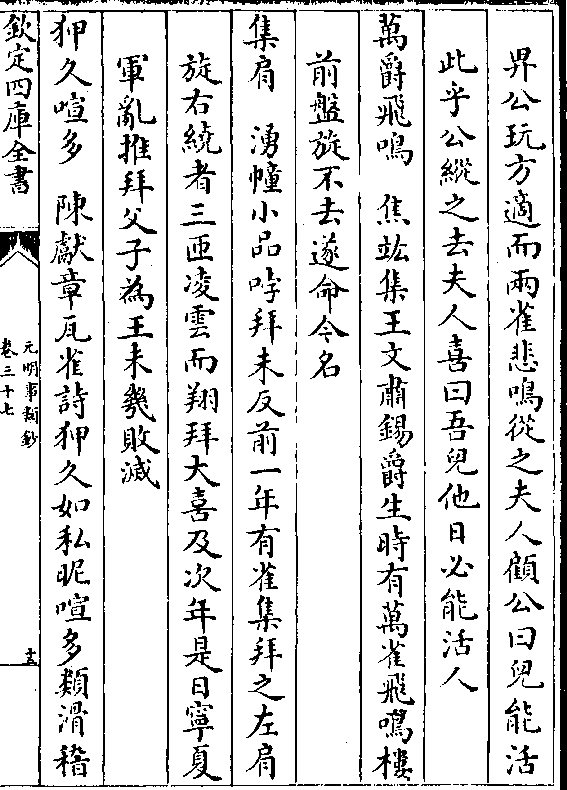 畀公玩方適而兩雀悲鳴從之夫人顧公曰兒能活
此乎公縱之去夫人喜曰吾兒他日必能活人
萬爵飛鳴　焦竑集王文肅錫爵生時有萬雀飛鳴樓
前盤旋不去遂命今名
集肩　湧幢小品哱拜未反前一年有雀集拜之左肩
旋右繞者三匝凌雲而翔拜大喜及次年是日寧夏
軍亂推拜父子為王未幾敗滅
狎久喧多　陳獻章瓦雀詩狎久如私昵喧多類滑稽
欽定四庫全書
元明事類鈔
卷三十七
十五